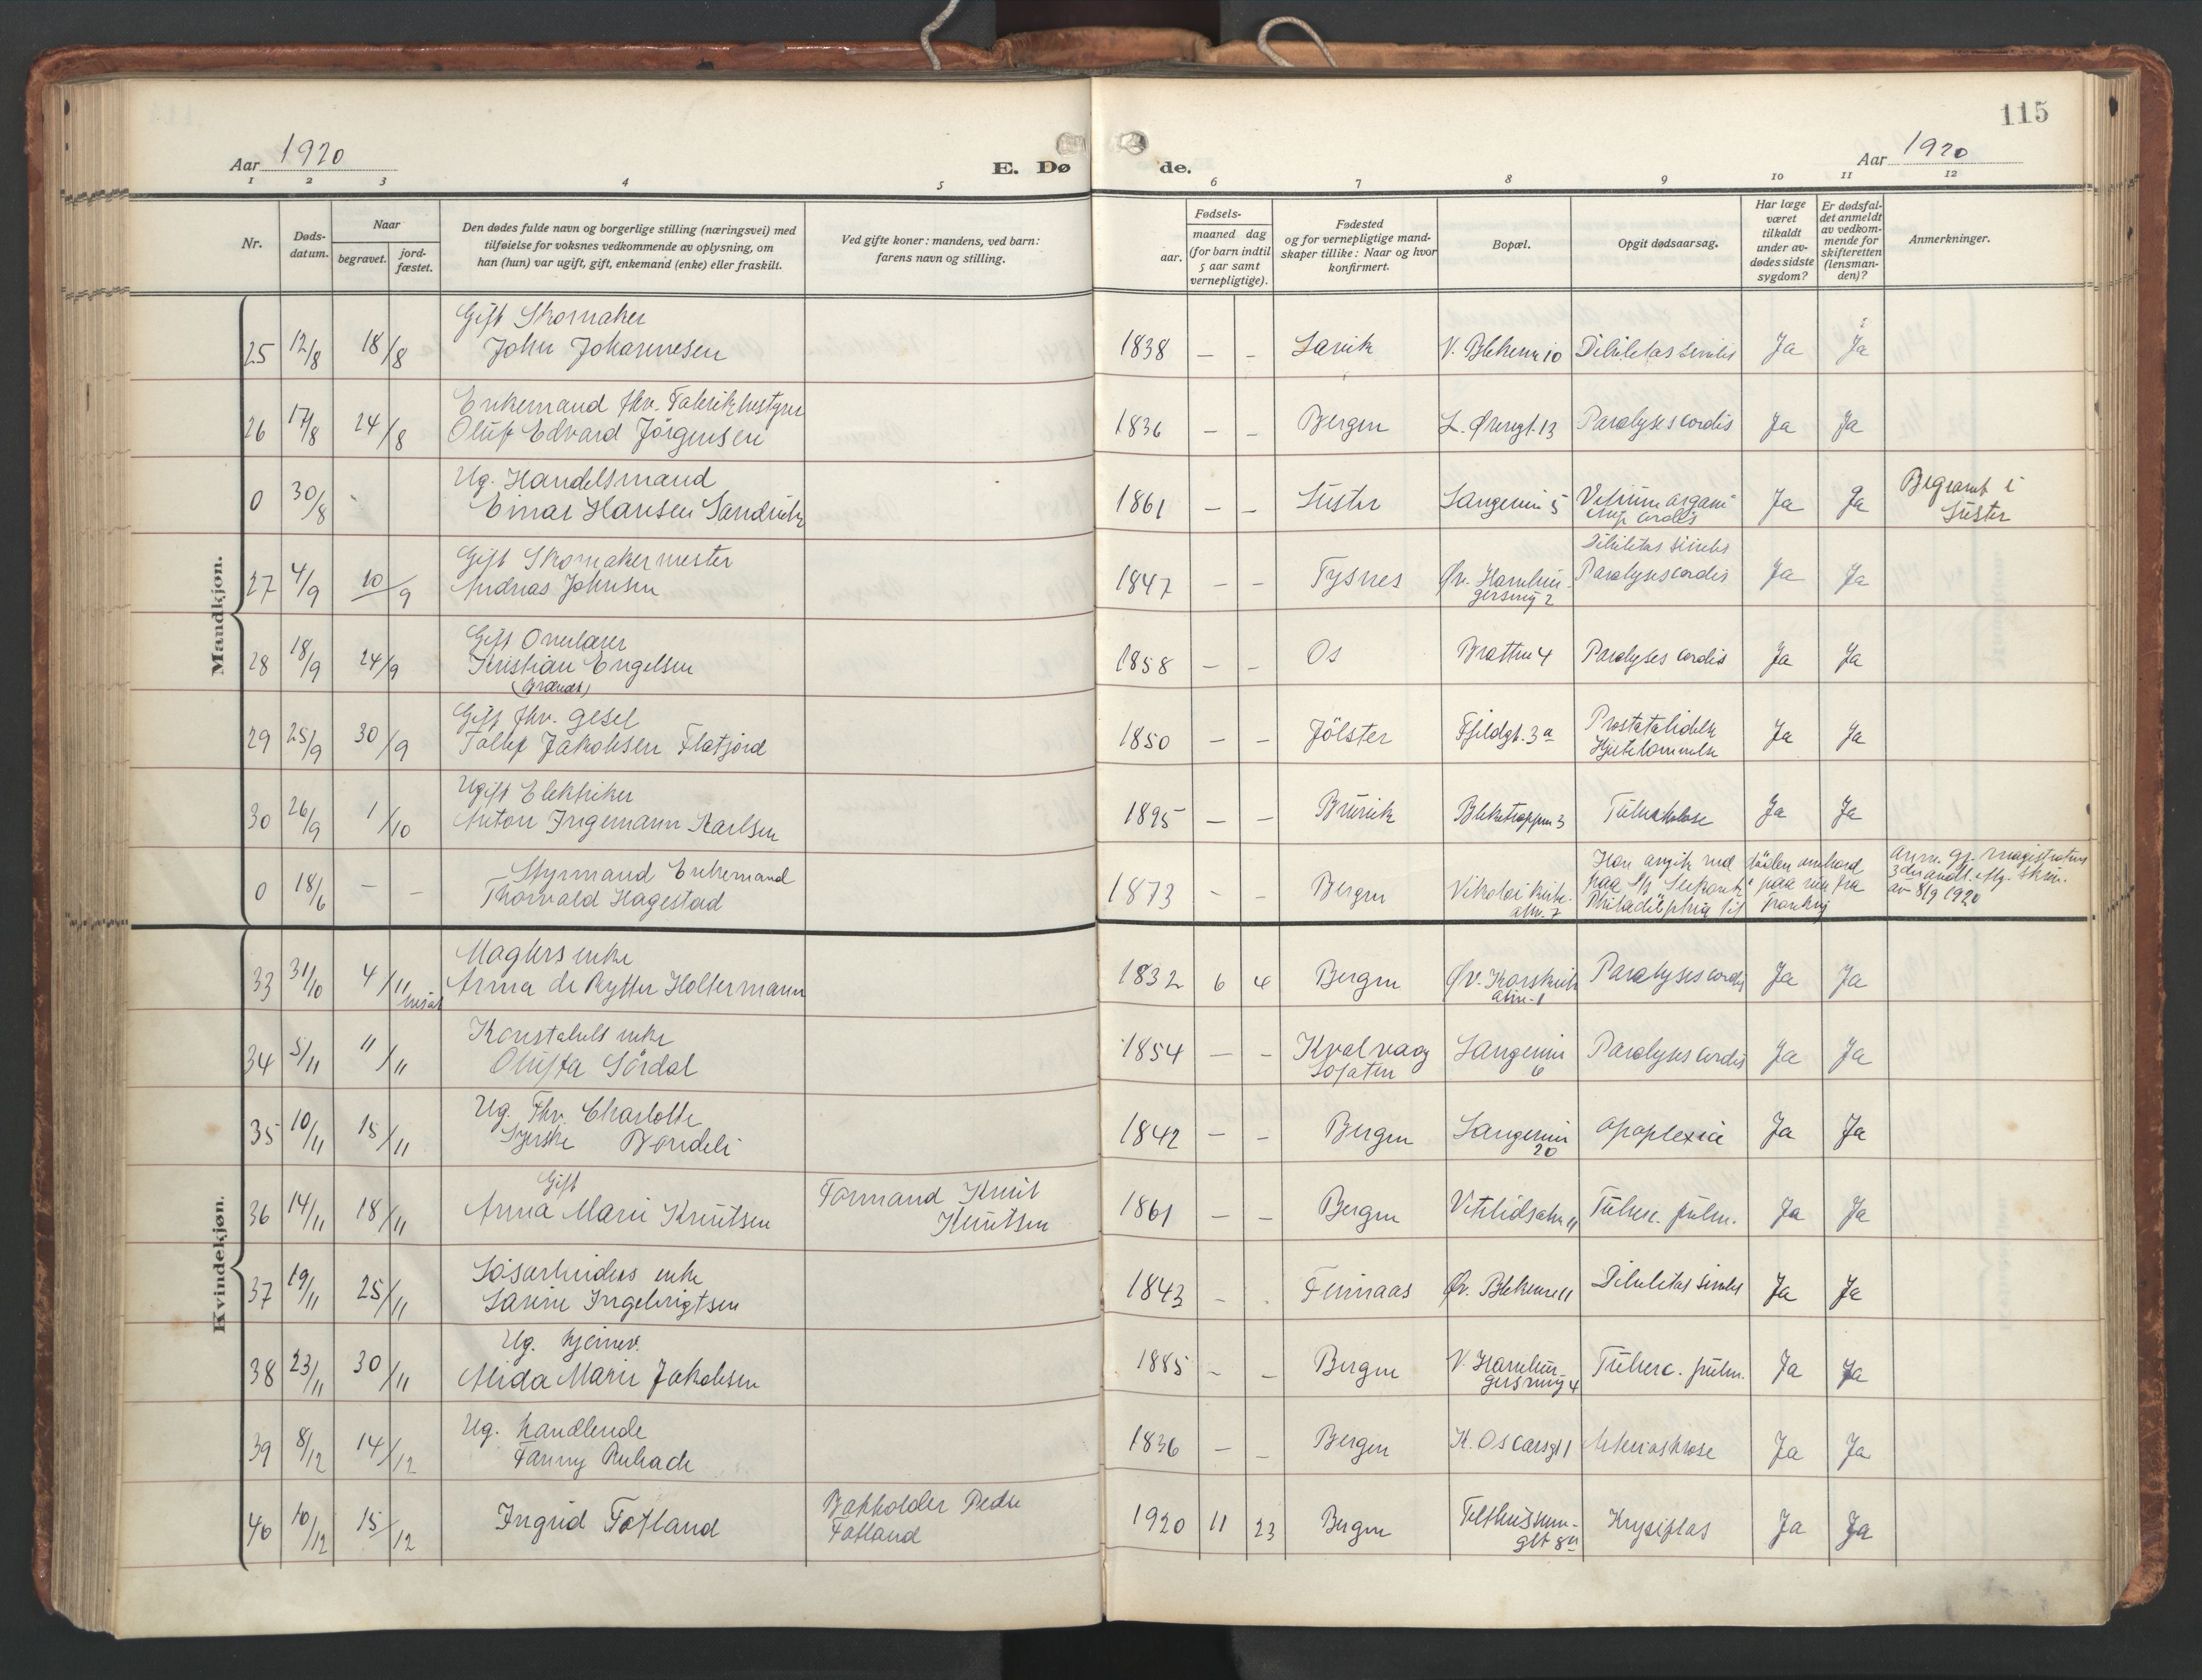 115
Aar 1920
E. Dø
de.
Aar 1920
1 2 3 4 5 6 7 8 9 10 11 12
Nr.
Døds-
datum.
Naar
begravet.
jord-
fæstet.
Den dødes fulde navn og borgerlige stilling (næringsvei) med
tilføielse for voksnes vedkommende av oplysning, om
han (hun) var ugift, gift, enkemand (enke) eller fraskilt.
Ved gifte koner: mandens, ved barn:
farens navn og stilling.
aar.
Fødsels-
maaned dag
(for barn indtil
5 aar samt
vernepligtige).
Fødested
og for vernepligtige mand-
skaper tillike: Naar og hvor
konfirmert.
Bopæl.
Opgit dødsaarsag.
Har læge
været
tilkaldt
under av-
dødes sidste
sygdom?
Er dødsfal-
det anmeldt
av vedkom-
mende for
skifteretten
(lensman-
den)?
Anmerkninger.
Mandkjøn.
Gift Skomaker
25 12/8 18/8 John Johannesen 1838 – – V. Blekevei 10 Debilitas senilis Ja Ja
Enkemand fhv. Fabrikbestyrer
26 17/8 24/8 Oluf Edvard Jörgensen 1836 – – Bergen L. Øvregt. 13 Paralyses cordis Ja Ja
Ug. Handelsmand
0 30/8 - Einar Hansen Sandvik 1861 – – Luster Langevei 5 Vitium organi- Ja Ja Begravet i
cum cordis Luster
Gift Skomakermester Debilitas senilis
27 4/9 10/9 Andreas Johnsen 1847 – – Tysnes Øv. Hambur- Paralyses cordis Ja Ja
gersmug 2
Gift Overlærer
28 18/9 24/9 Kristian Engelsen 1858 – – Os Bratten 4 Paralyses cordis Ja Ja
(Brændt)
Gift fhv. gesel Prostatalidelse
29 25/9 30/9 Jakobsen Flatjord 1850 – – Jölster Fjeldgt. 3a Ja Ja
Ugift Elektriker
30 26/9 1/10 Anton Ingemann Karlsen 1895 – – Bruvik Bleketrappen 3 Tuberkulose Ja Ja
Styrmand Enkemand Han avgik ved döden ombord Anm. gj. magistratens
0 18/6 – – Thorvald Hagestad 1873 - – Bergen Nikolai kirke- paa paa reise fra 3die avdl. skriv.
alm. 7 Philadelphia til av 8/9 1920
Kvindekjøn.
Maglers enke
33 31/10 4/11 Anna de Rytter Holtermann 1832 6 4 Bergen Øv. Korskirke Paralyses cordis Ja Ja
bisat alm. 1
Konstabels enke
34 5/11 11/11 Olufta Sördal 1854 – – Kvalvaag Langevei Paralyses cordis Ja Ja
Lofoten 6
Ug. Frk. Charlotte
35 10/11 15/11 Bondeli 1842 – – Bergen Langevei apoplexia Ja Ja
20
Gift Formand Knut
36 14/11 18/11 Anna Marie Knutsen Knutsen 1861 – – Bergen Vetrlidsalm 11 Tuberc. pulm. Ja Ja
Løsarbeiders enke
37 19/11 25/11 Sarine Ingebrigtsen 1843 – - Finnaas Øv. Blekevei 11 Debilitas senilis Ja Ja
Ug. hjemmev.
38 23/11 30/11 Alida Marie Jakobsen 1885 – – Bergen V. Hambur- Tuberc. pulm. Ja Ja
gersmug 4
Ug. handlende
39 8/12 14/12 Fanny Rubach 1836 – – Bergen K. Oscarsgt 1 Ja Ja
Peder
40 10/12 15/12 Ingrid Fotland Fotland 1920 11 23 Bergen Telthussmu- Krysiplas Ja Ja
get 8a